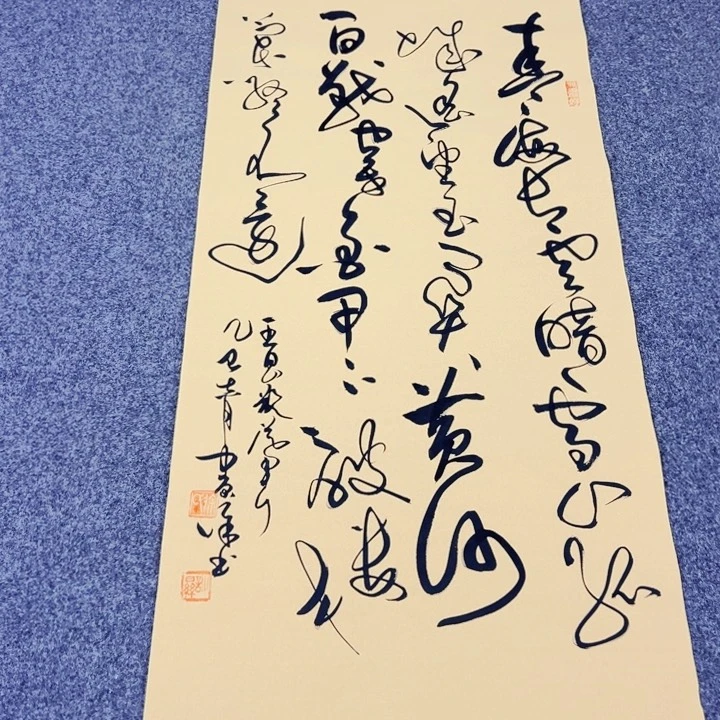 青海長雲暗雪山孤
城遥望玉門關黄沙
百戰穿金甲不破樓
蘭終不還
王昌齡從軍行
乙巳